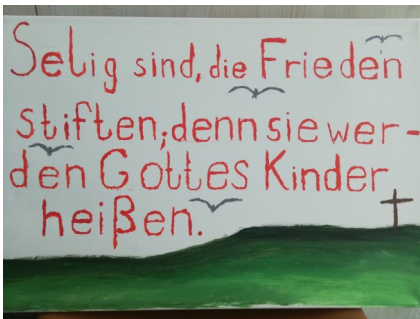 Selig sind, die Frieden
stiften; denn sie wer-
den Gottes Kinder
heißen.